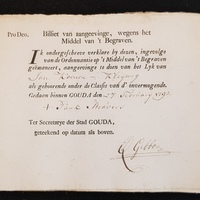 Pro Deo.
Billiet van aangeevinge, wegens het
Middel van 't Begraven.
IK ondergeschreve verklare by dezen, ingevolge
van de Ordonnantie op 't Middel van 't Begraven
geëmaneert, aangevinge te doen van het Lyk van
Jan
als gehoorende onder de Classis van d' invermogende.
Gedaan binnen GOUDA den 27 February 179
Ter Secretarye der Stad GOUDA,
geteekend op datum als boven.